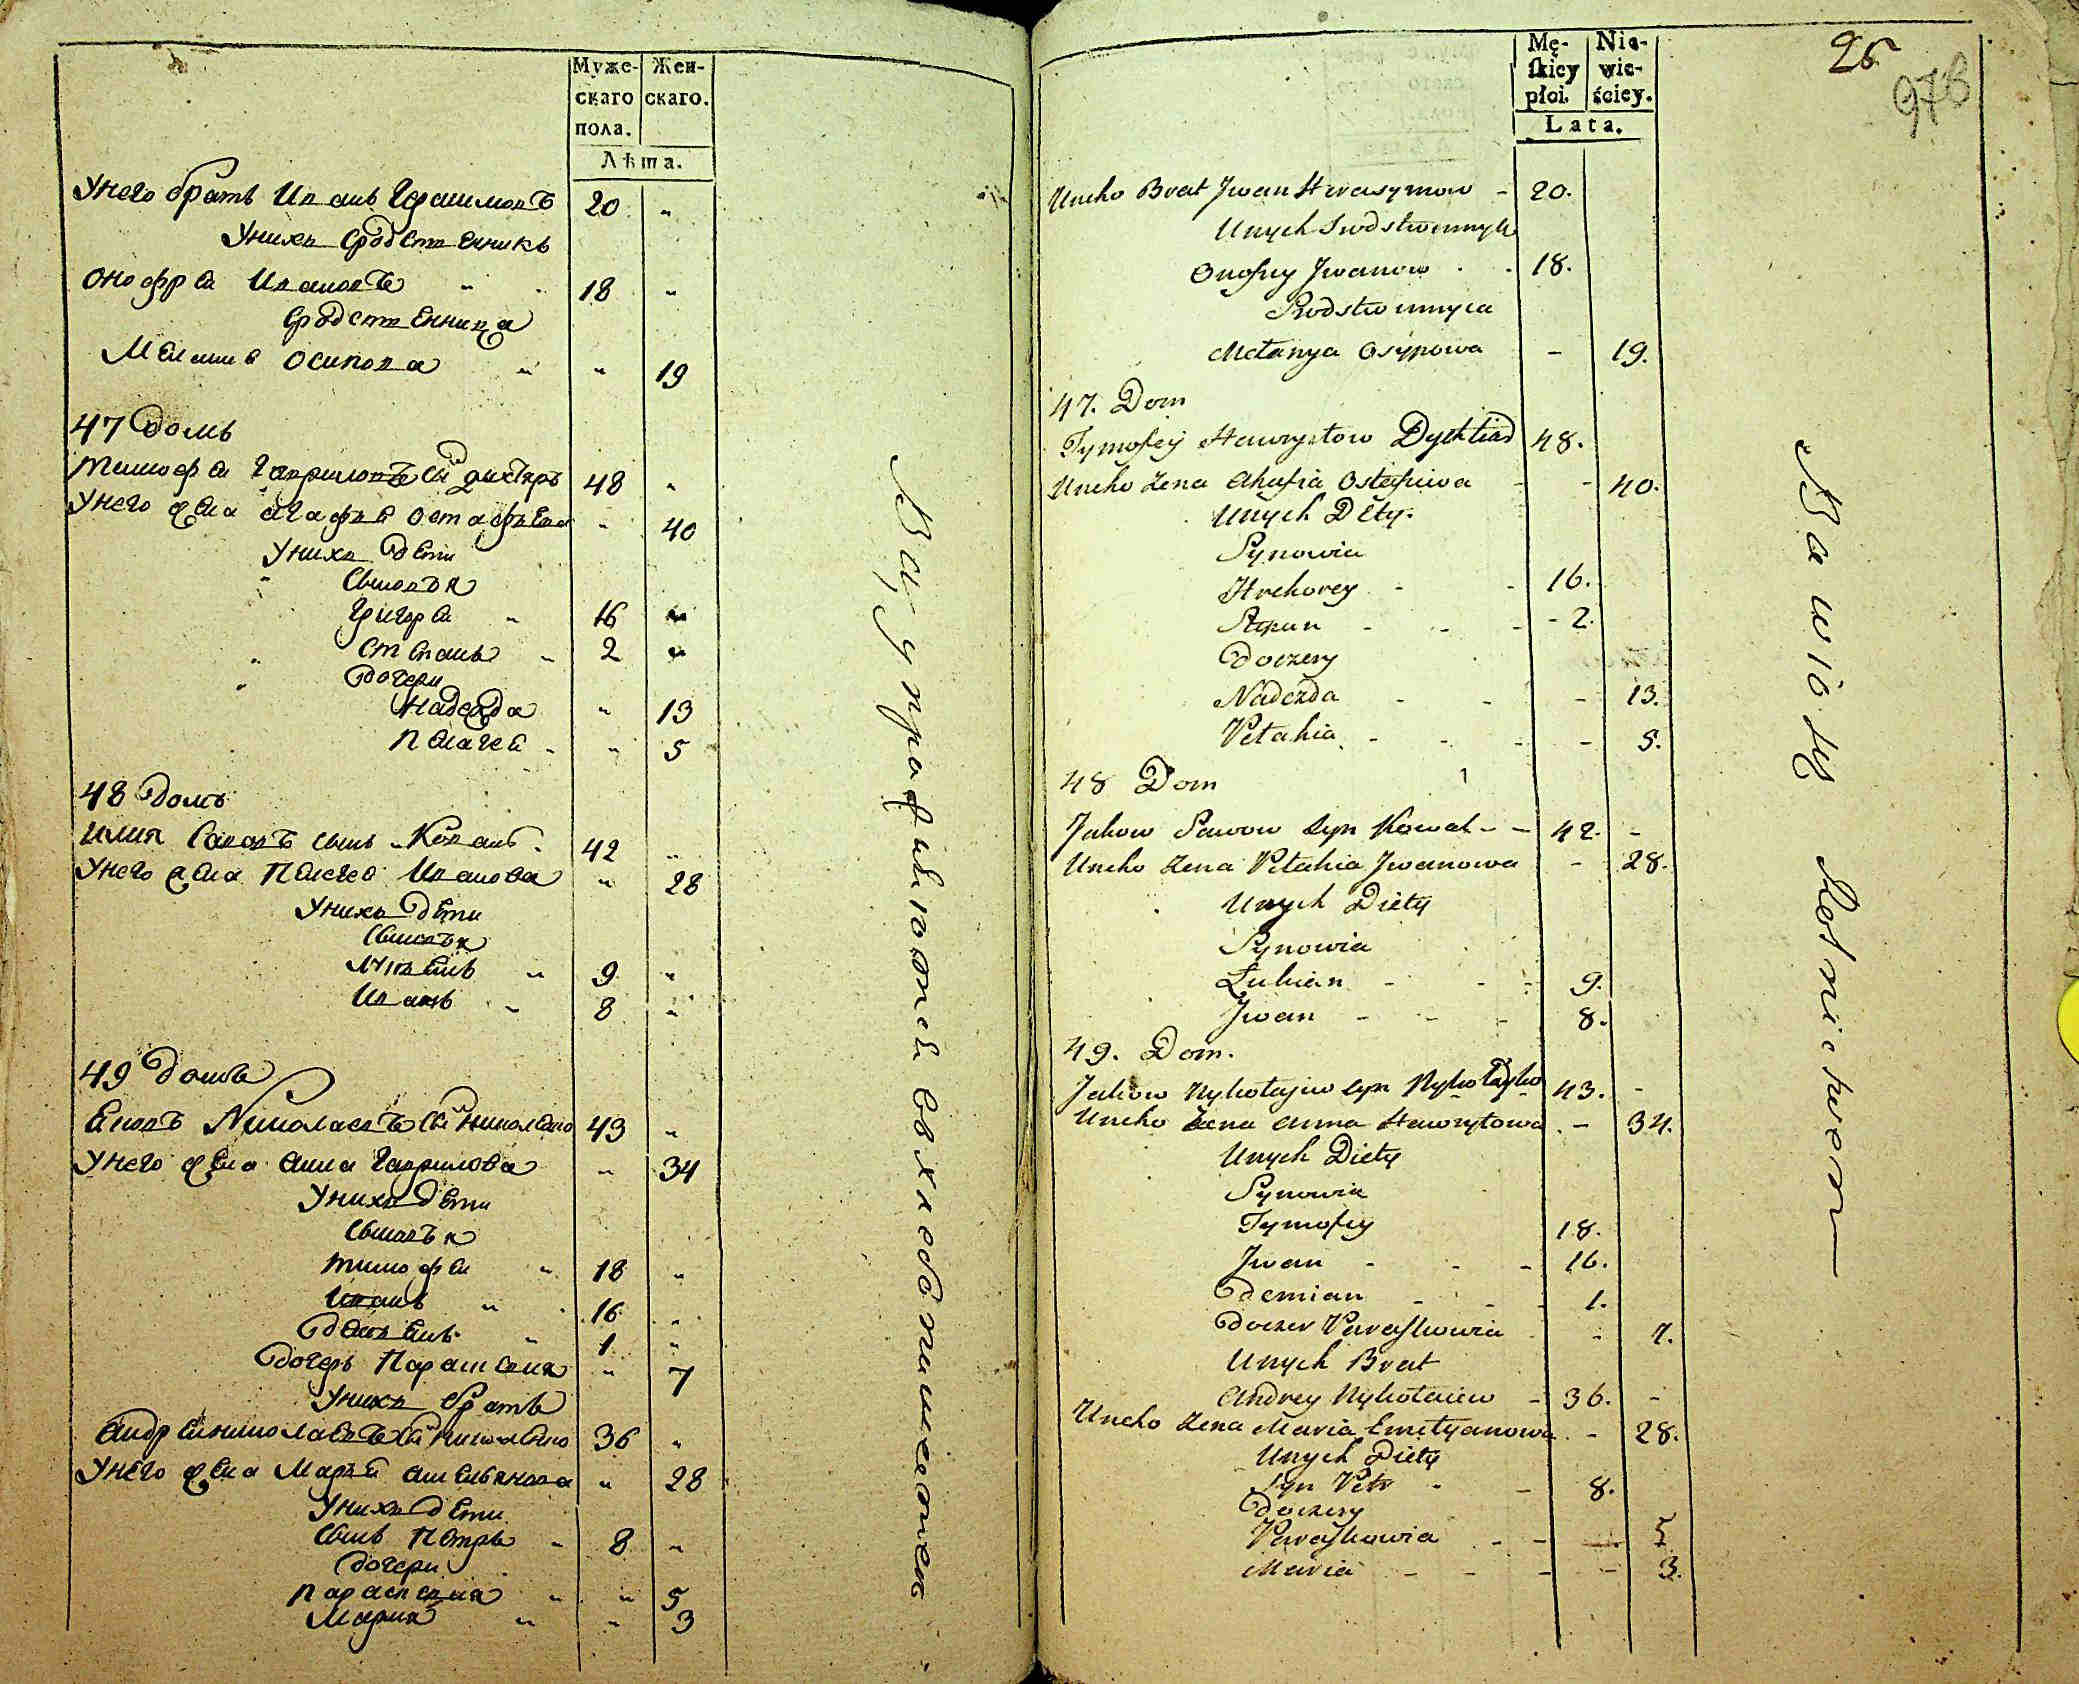 Муже-
скаго
пола.
Жен-
скаго.
Лѣта.
Унего братъ Иванъ Герасимовъ 20 "
Унихъ Сродственникъ
Онофрей Ивановъ " " 18 "
Сродственница
Меланія Осипова " " 19
47 домъ
Тимофей Гавриловъ Сынъ Дихтяръ 48 "
Унего жена Агафія Остафіева " 40
Унихъ дети
Сыновья
Григорей " 16 "
Степанъ " 2 "
дочери
Надежда " 13
Пелагея " " 5
48 домъ
Саввовъ сынъ Коваль 42 "
Унего жена Пелагея Иванова " 28
Унихъ дети
Сыновья
" 9 "
Иванъ " 8 "
49 домъ
Николаевъ Сынъ 43 "
Унего жена Анна Гаврилова " 34
Унихъ дети
Сыновья
Тимофей " 18 "
Иванъ " 16 "
Демьянъ " 1 "
дочерь Парасковія " 7
Унихъ братъ
Андрей Николаевъ Сынъ 36 "
Унего жена Марья Емельянова " 28
Унихъ дети
Сынъ Петръ " 8 "
дочери
Парасковия " " 5
Мария " " 3
Mę-
skiey
płci.
Nie-
wie-
ściey.
Lata.
26
97в
Uneho Brat Jwan Harasymow - 20.
Unych Srodstwennyk
Onofrey Jwanow . . 18.
Srodstwennyca
Mełanya Osypowa - 19.
47. Dom
Tymofey Hawryłow Dychtiar 48.
Uneho Zena Ahafia Ostafiewa - - 40.
Unych Dety.
Synowia
Hrehorey - - 16.
Stepan - - - - 2.
Doczery
Nadezda - - - 13.
Petahia - - - - 5.
48 Dom
Jakow Sawow Syn Kowal - - 42. -
Uneho Zena Petahia Jwanowa - 28.
Unych Diety
Synowia
Lukian - - - 9.
Jwan - - - 8.
49. Dom.
Jakow Nykołajew Syn 43. -
Uneho Zena Anna Hawryłowa . - 34.
Unych Diety
Synowia
Tymofey 18.
Jwan - - - 16.
Demian - - - 1.
Doczer Paraskowia - 7.
Unych Brat
Andrey Nykołaiew - 36. -
Uneho Zena Maria Emelyanowa . - 28.
Unych Diety
Syn Petr - - 8.
Doczery
Paraskowia - - - 5
Maria - - - - 3.